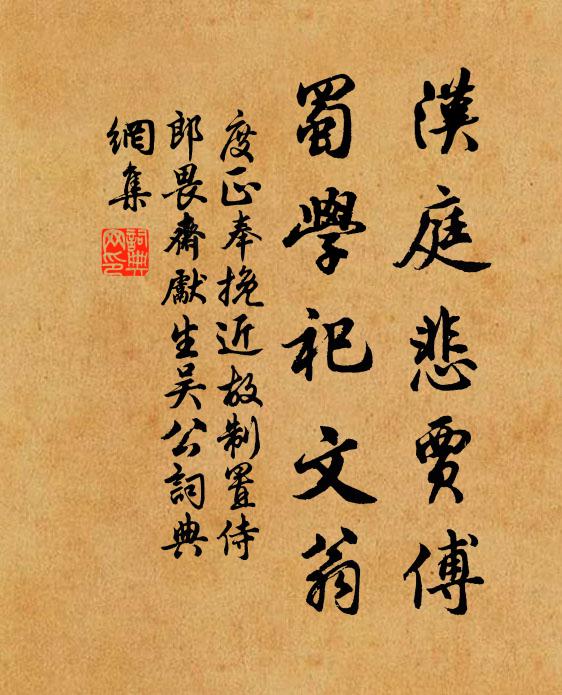 漢庭悲賈傅
蜀學祀文翁
度正奉挽近故制置侍
郎畏齋獻生吴公詞典
網集
詞典網印